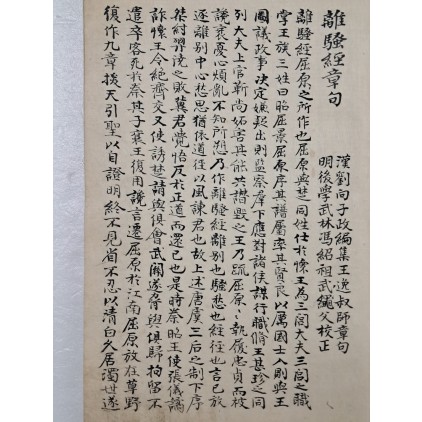 離騷經章句
漢劉向子政編集王逸叔師章句
明後學武林馮紹祖繩武父校正
離騷經屈原之所作也屈原與楚同姓仕於懷王為三閭大夫三閭之職
掌王族三姓曰昭屈景屈原序其譜屬率其賢良以厲國士入則與王
圖議政事決定嫌疑出則監察羣下應對諸侯謀行職脩王甚珍之同
列大夫上官靳尚妬害其能共譖毀之王乃疏屈原屈原執履忠貞而被
讒邪憂心煩亂不知所愬乃作離騷經離別也騷愁也經徑也言已放
逐離別中心愁思猶依道徑以風諫君也故上述唐虞三后之制下序
桀紂羿澆之敗冀君覺悟反於正道而還己也是時秦昭王使張儀譎
詐懷王令絕齊交又使誘楚請與俱會武關遂脅與俱歸拘留不
遣卒客死於秦其子襄王復用讒言遷屈原於江南屈原放在草野
復作九章援天引聖以自證明終不見省不忍以清白久居濁世遂